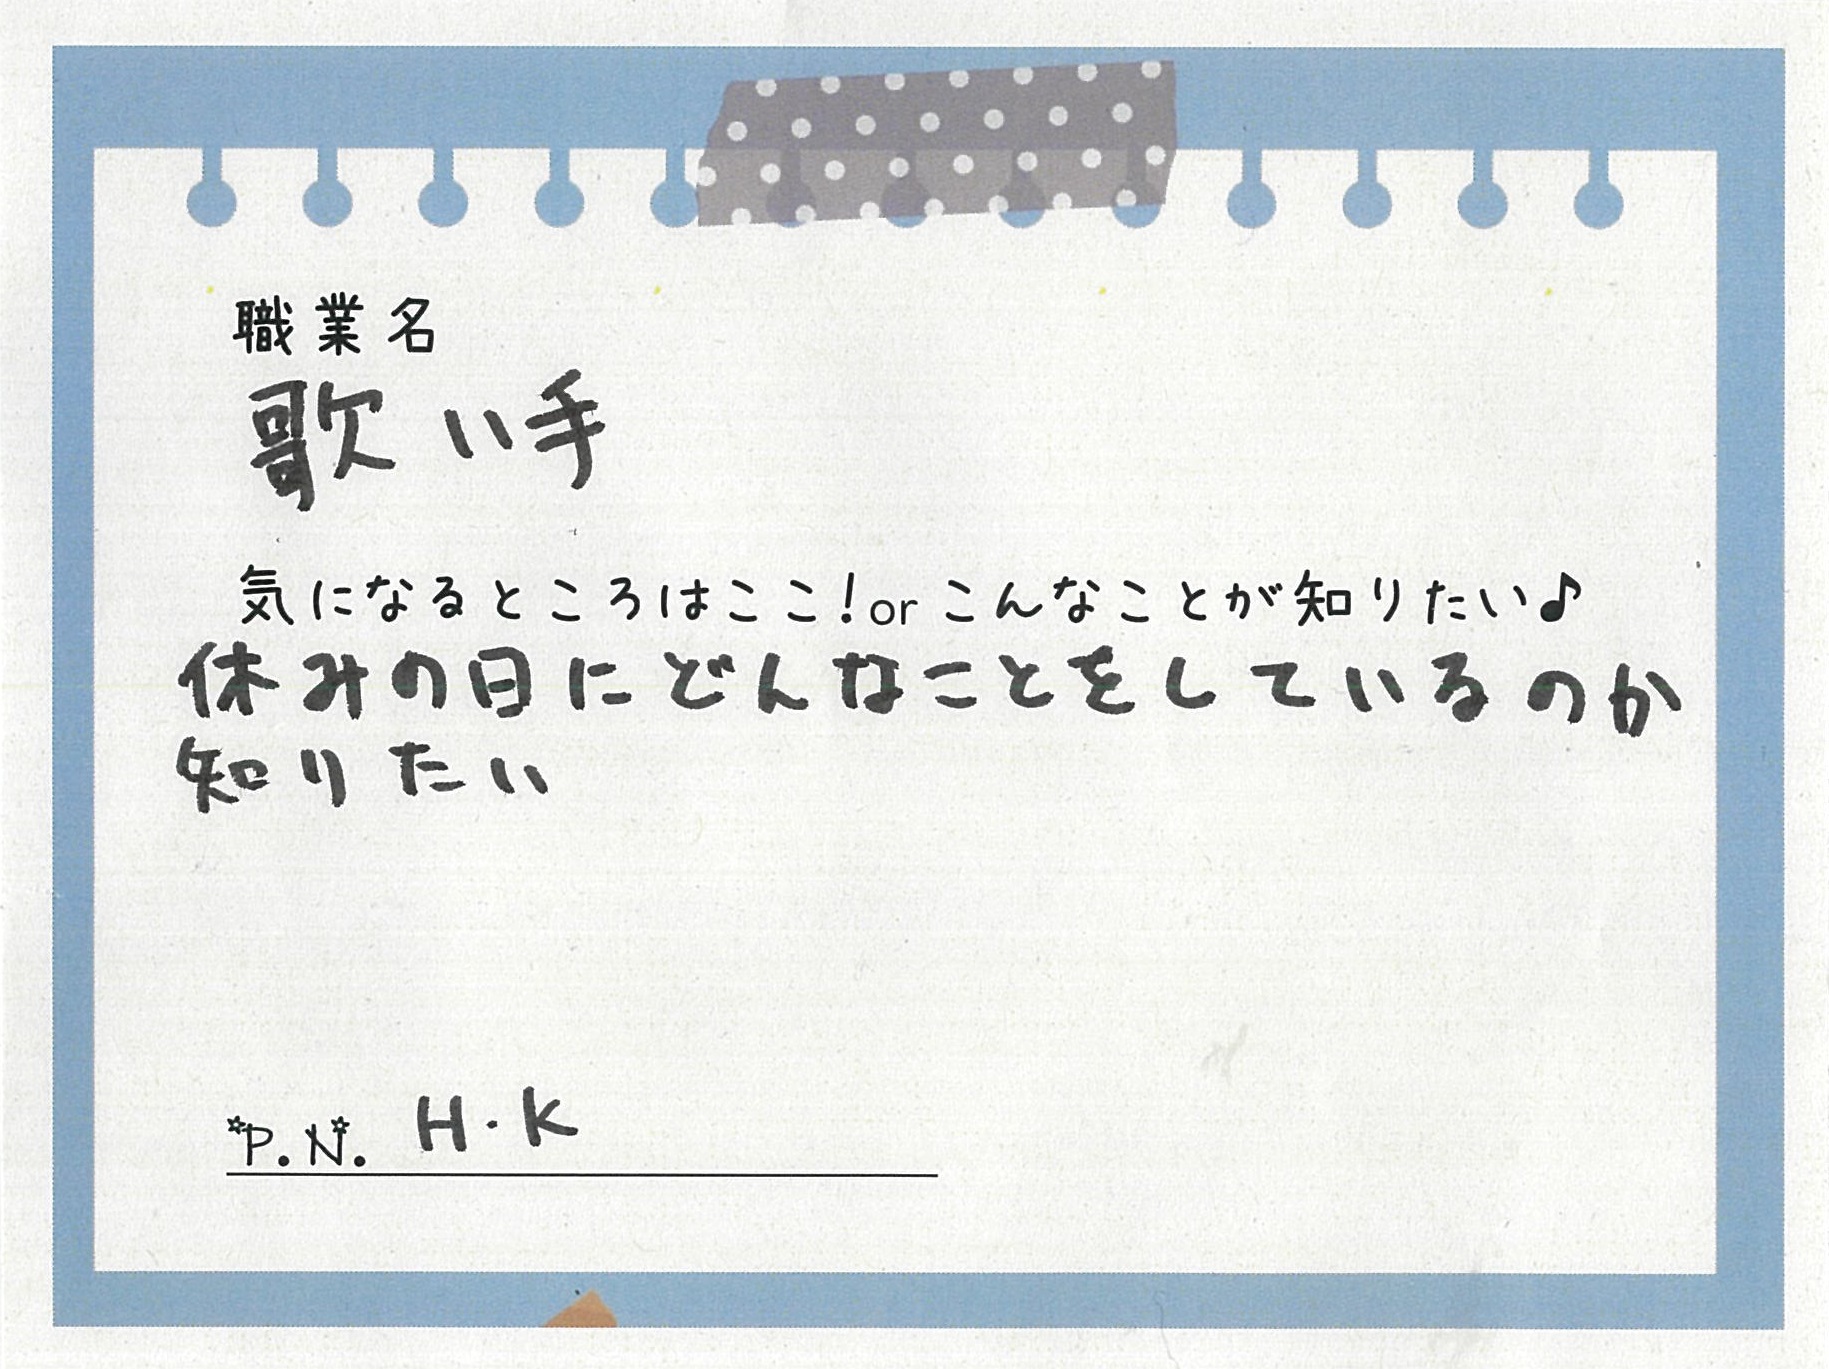 職業名
歌い手
気になるところはここ!orこんなことが知りたい♪
休みの日にどんなことをしているのか
知りたい
P.N. H・K